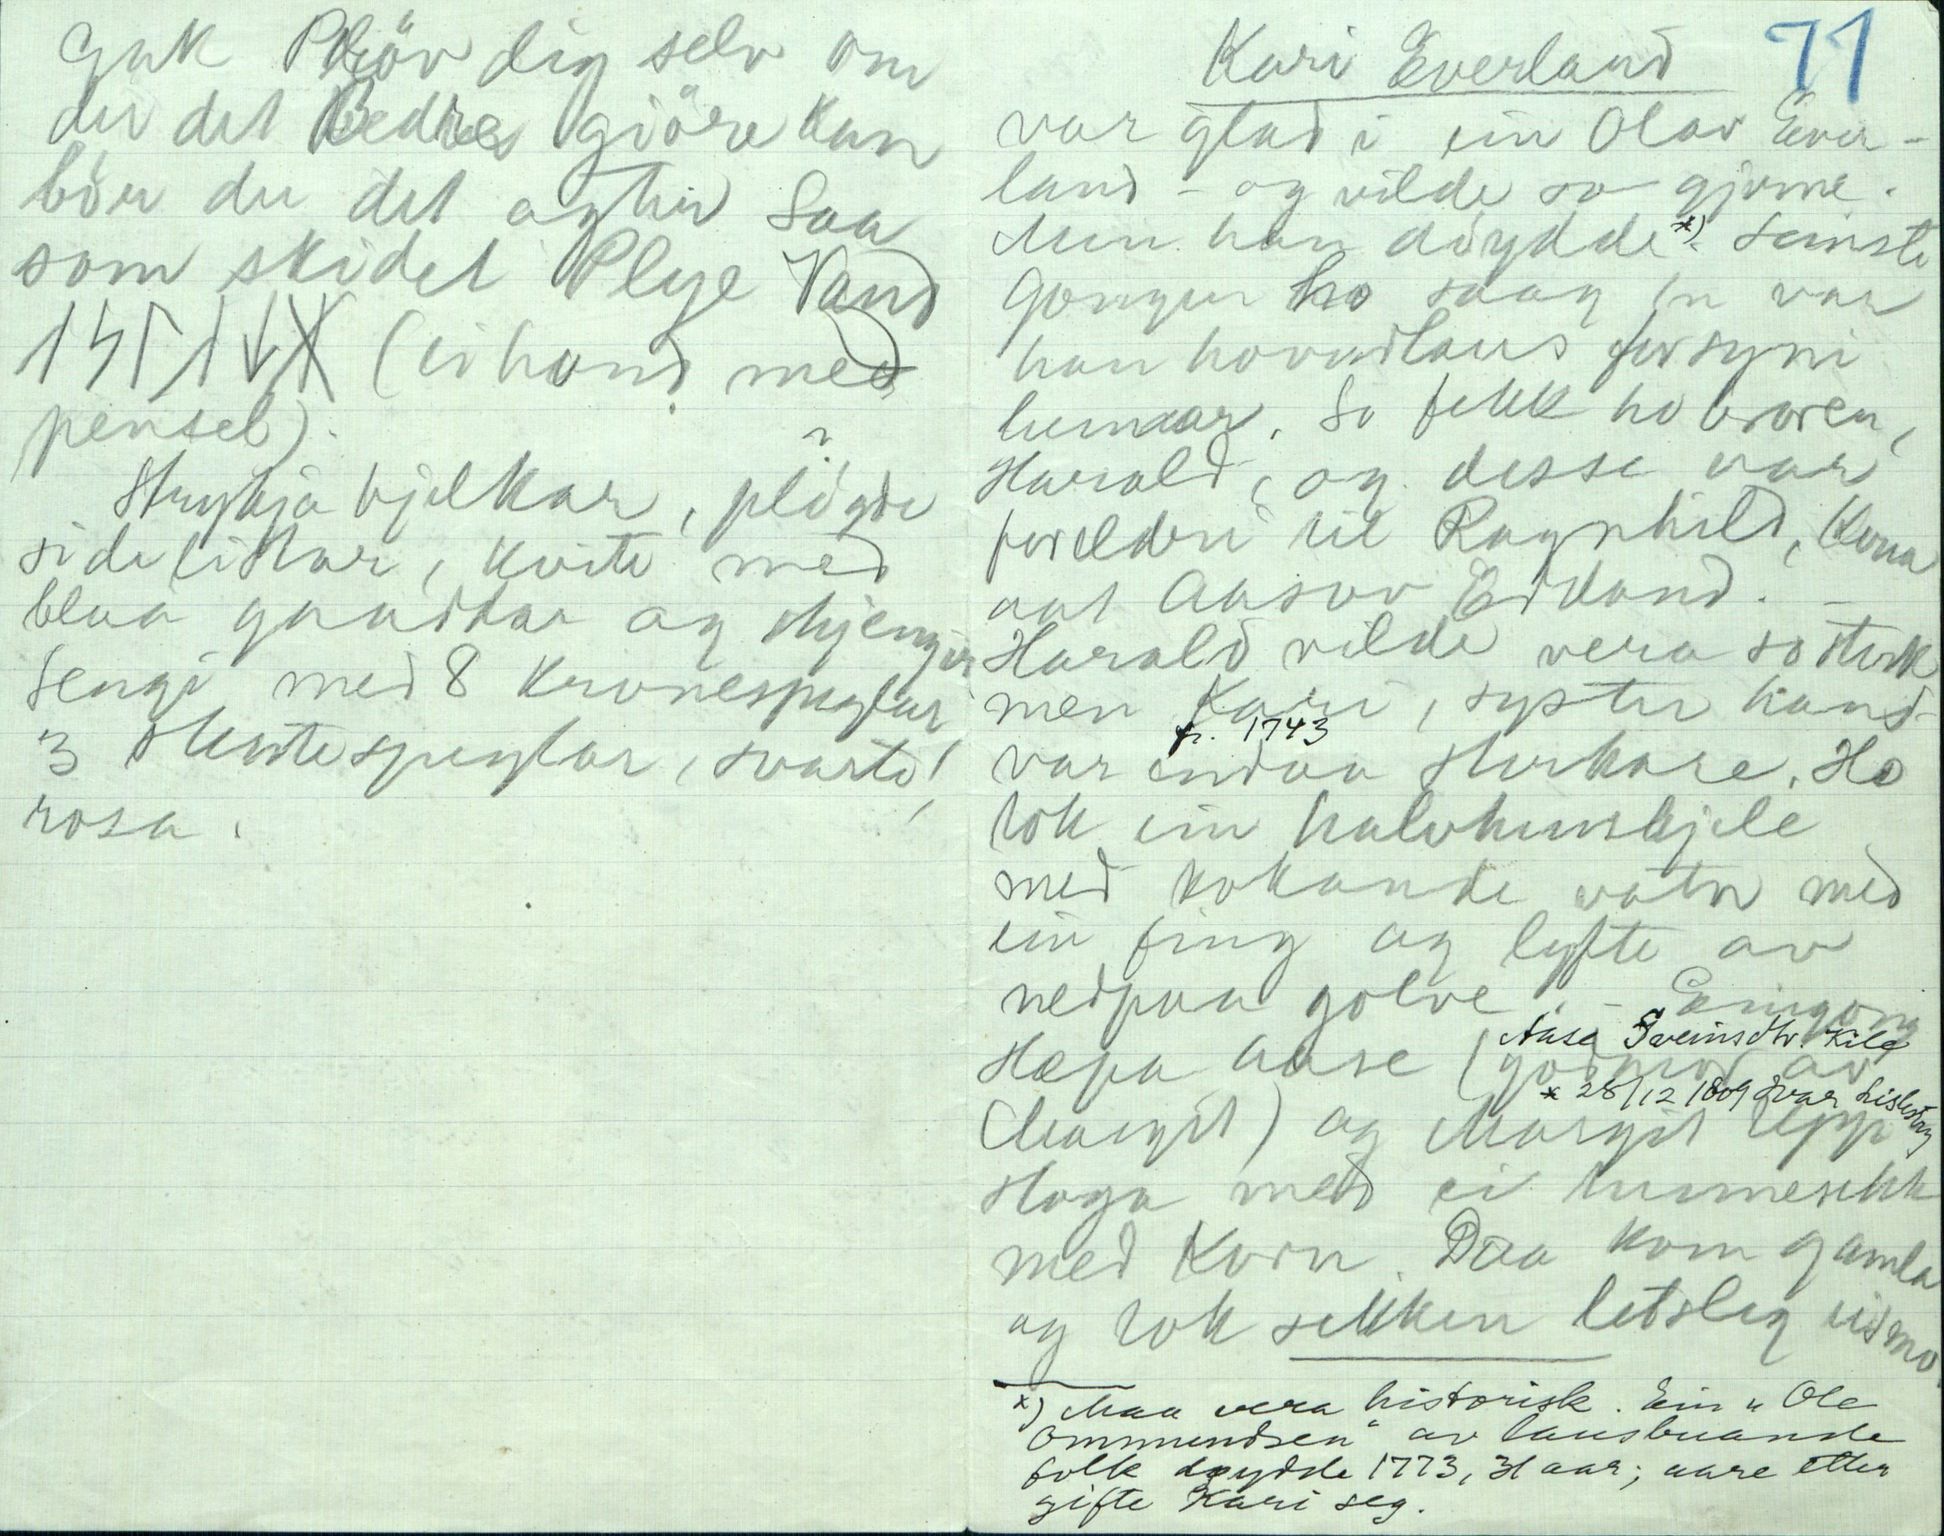 Gak Pröv dig selv om
du det Bedres giöre kan
bör du det agter Saa
som skidet Plye Vand
(ei hand med
pensel).
bjelkar, plögde
sidelistar, kvite med
blaa
Sengi med 8 kronespeglar,
3 speglar, svarte,
rosa.
71
Kari Everland
var glad i ein Olav Ever-
land - og vilde so gjerne.
Men han döydde *). Seinste
Gongen ho saag 'n var
han hovudlaus for syni
hennar. So fekk ho broren,
Harald, og desse var
foreldri til Ragnhild, Kona
aat Aasov Edland. -
Harald vilde vera so sterk
men Kari, syster hans
f. 1743
var endaa sterkare. Ho
tok ein halvtunskjele
med kokande vatn med
ein fing og lyfte av
nedpaa golve. - Eingong
Aase Sveinsdtr. Kile
stepa Aase (godmor av
* 28/12 1809
Margit) og Margit uppi
Stoga med ei tunnesekk
med Korn. Daa kom gamla
og tok sekken letsleg
*) Maa vera historisk. Ein "Ole
Ommundsen" av lausbuande
folk döydde 1773, 31 aar; aare etter
gifte Kari seg.